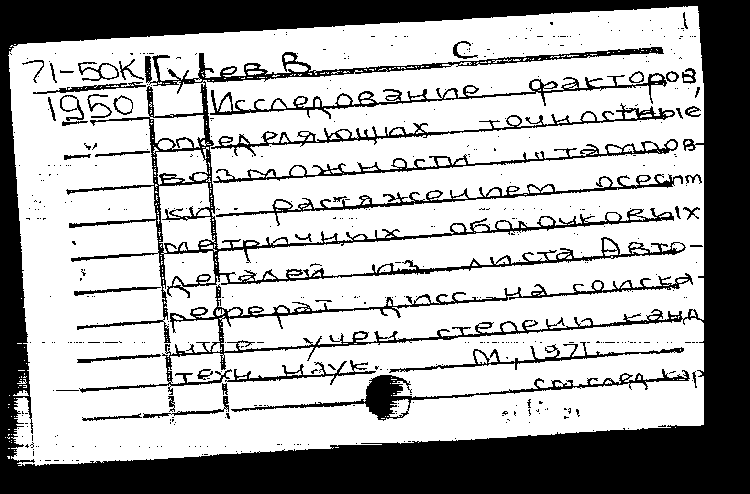 1
71-50К Гусев, В С
1950 Исследование факторов,
определяющих точностные
возможности штампов-
ки растяжением осесим
метричных оболочковых
деталей из листа. Авто-
реферат дисс. на соиска-
ние учен. степени канд
техн. наук. М., 1971.
см.след.кар